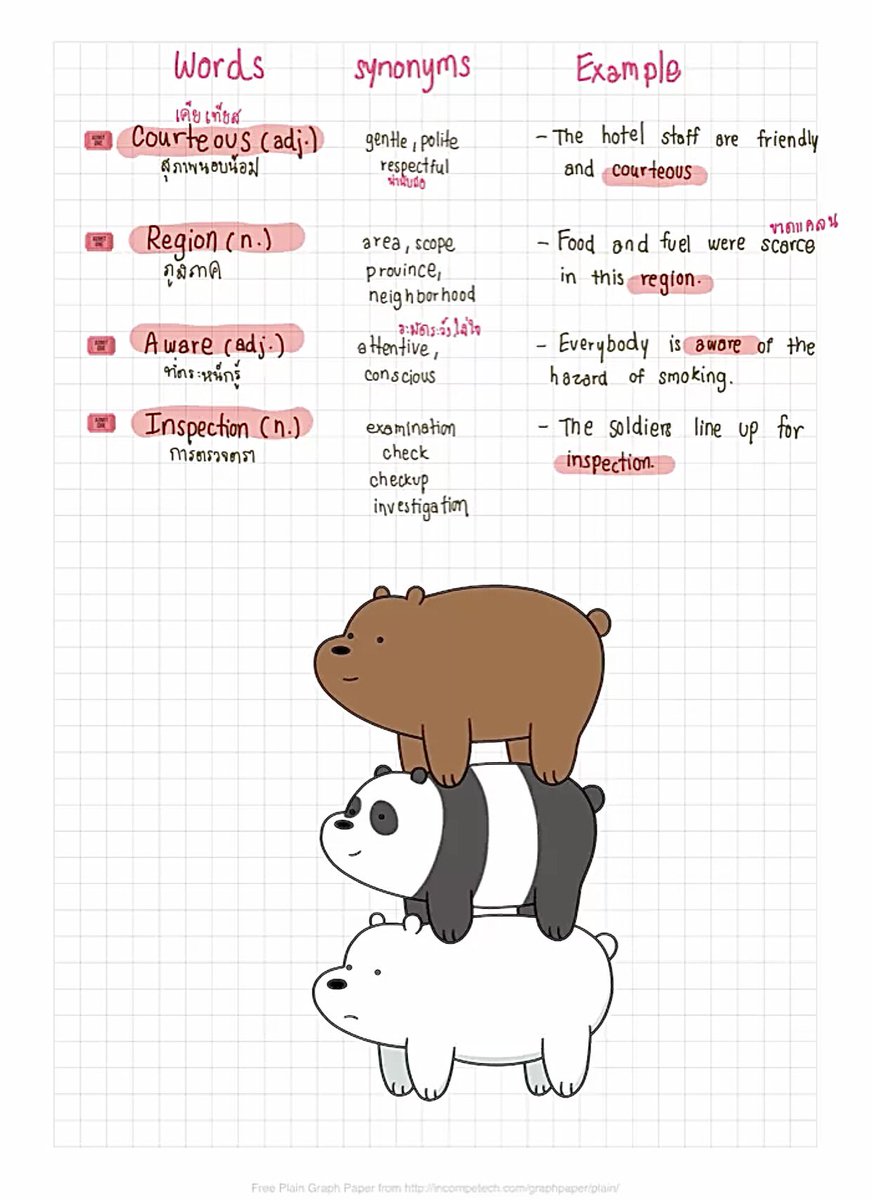 Words synonyms Example
เคีย เทียส
Courteous (adj.)
สุภาพนอบน้อม
gentle, polite
respectful
น่านับถือ
- The hotel staff are friendly
and courteous
Region (n.)
ภูมิภาค
area, scope
province,
neighborhood
ขาดแคลน
- Food and fuel were scarce
in this region.
Aware (adj.)
ที่ตระหนักรู้
ระมัดระวัง ใส่ใจ
attentive,
conscious
- Everybody is aware of the
hazard of smoking.
Inspection (n.)
การตรวจตรา
examination
check
checkup
investigation
- The soldiers line up for
inspection.
Free Plain Graph Paper from http://incompetech.com/graphpaper/plain/